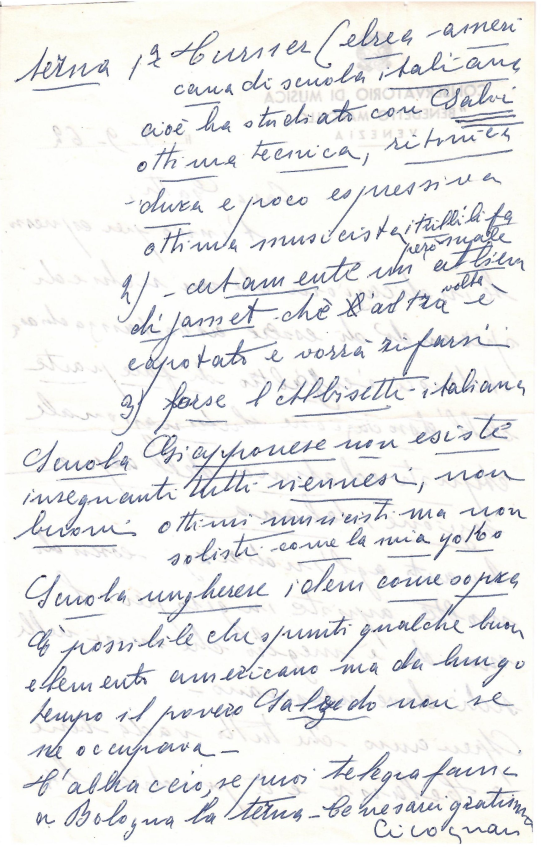 terna 1ª Turner (ebrea-ameri
cana di scuola italiana
cioè ha studiato con Salvi
ottima tecnica, ritmica
dura e poco espressiva
ottima musicista i trilli li fa
però male
2) - certamente un allieva
di Jasset chè l'altra volta è
capotato e vorrà rifarsi
3) forse l'Albisetti-italiana
Scuola Giapponese non esiste
insegnanti tutti viennesi, non
buoni ottimi musicisti ma non
solisti come la mia yoko
Scuola ungherese idem come sopra
E' possibile che spunti qualche buon
elemento americano ma da lungo
tempo il povero Salzedo non se
ne occupava -
T'abbraccio, se puoi telegrafami
a Bologna la terna - te ne sarei gratissima
Cicognari
CONSERVATORIO DI MUSICA
BENEDETTO MARCELLO
VENEZIA